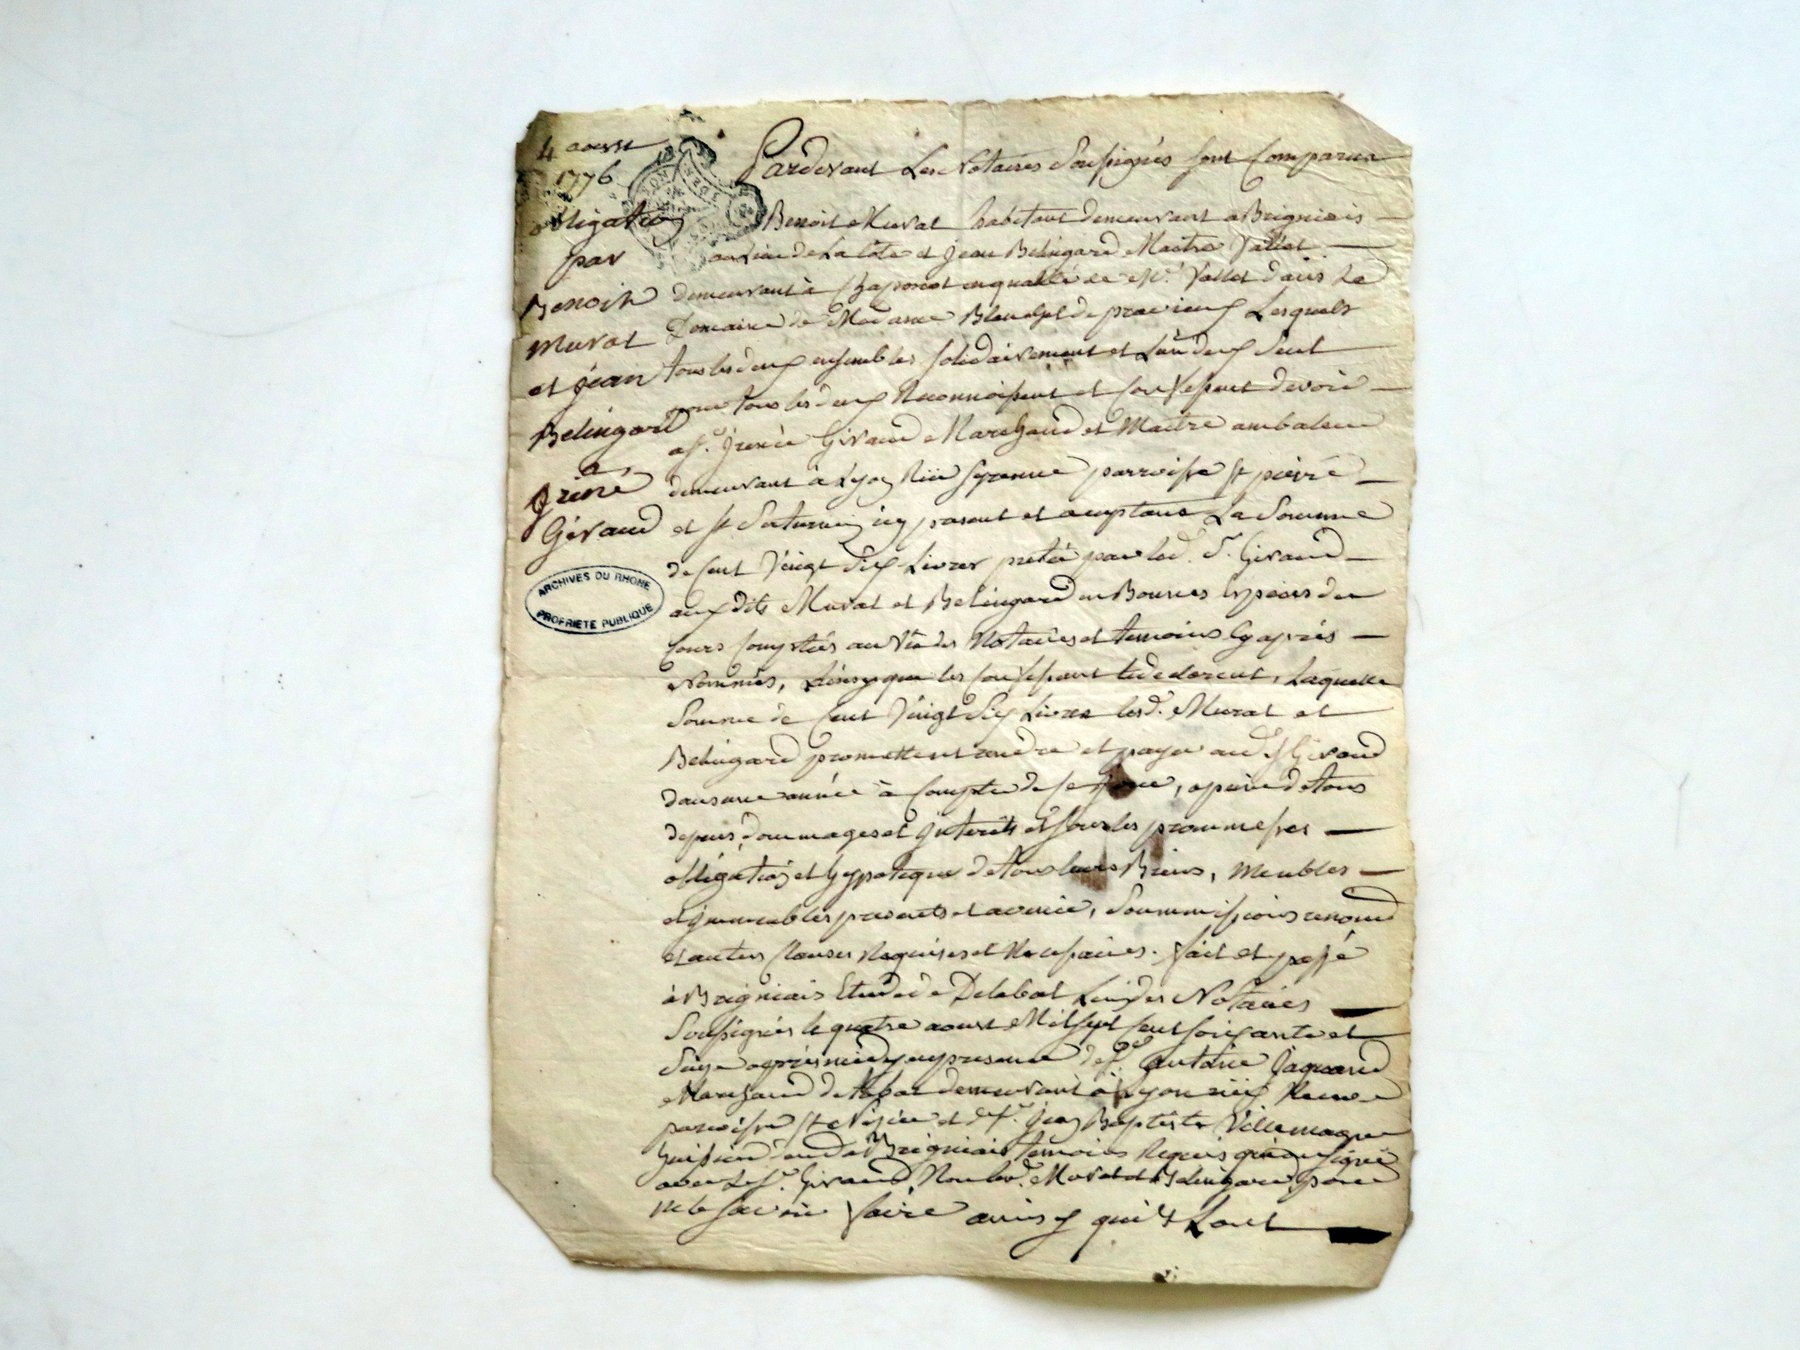 4 aoust
1776
obligation
par
Benoit
murat
et jean
Belingard
a
jriné
Giraud
ARCHIVES DU RHONE
PROPRIETE PUBLIQUE
Pardevant Les Notaires Soussignés sont Comparus
Benoit Murat habitant demeurant a Brigniais
au Lieu de La Côte et jean Belingard Maitre Vallet
demeurant à Chaponost en qualité de Me. Vallet dans Le
Domaine de Madame de Lesquels
tous les deux ensembles solidairement et L'un d'eux Seul
pour tous les deux Reconnoissent et Confessent devoir
a Sr. jrenée Giraud Marchand et Maitre ambaleur
demeurant à Lyon Rüe parroisse St pierre
et St Saturnin icy present et acceptant La Somme
de Cent Vingt Six Livres pretée par led. Sr. Giraud
aux dits Murat et Belingard en Bonnes Especes du
Cours Comptées au Vû des Notaires et temoins Cy après
Nommés, Ainsy que les Confessant le declarent, Laquelle
Somme de Cent Vingt Six Livres lesd. Murat et
Belingard promettent rendre et payer aud. Sr Giraud
dans une année à Compter de Ce jour, a peine de tous
depens, dommages et jnterêts et sous les promesses
obligation et hypoteque de tous leurs Biens, Meubles
et jmmeubles presents et avenir, Soummissions renond
et autres Clauses Requises et Necessaires. fait et passé
à Brigniais Etude de Delabat L'un des Notaires
Soussignés le quatre aoust Mil sept Cent soixante et
Seize après midy en presence de Sr. antoine Jaquand
Marchand de demeurant à Lyon rüe
parroisse St Nizier et de Sr. jean Baptiste Villemagne
huissier aud. Brigniais temoins Requis qui ont signé
avec Le Sr. Giraud, Non lesd. Murat et Belingard pour
ne le savoir faire ainsy qu'ils L'ont